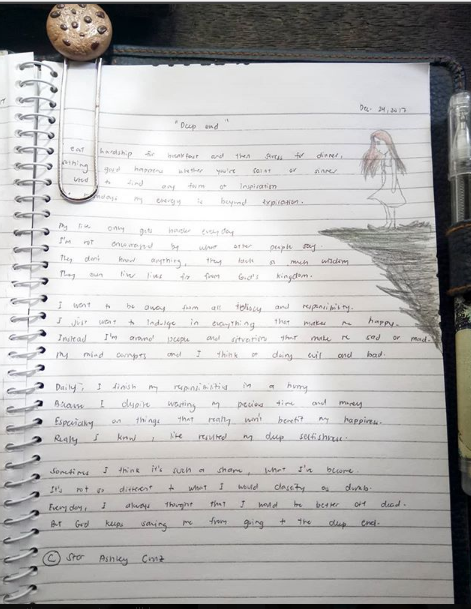 Dec. 24, 2017
"Deep end"
eat hardship for breakfast and then stress for dinner,
good happens whether you're saint or sinner
to find any form of inspiration
my energy is beyond expiration.
My life only gets harder everyday
I'm not encouraged by what other people say.
They don't know anything, they lack so much wisdom
They own their lives far from God's kingdom.
I want to be away from all and responsibility.
I just want to indulge in everything that makes me happy.
Instead I'm around people and situations that make me sad or mad.
My mind corrupts and I think of doing evil and bad.
Daily, I finish my responsibilities in a hurry
Because I despise wasting my precious time and money
Especially on things that really won't benefit my happiness.
Really I know, life resulted my deep selfishness.
Sometimes I think it's such a shame, what I've become.
It's not so different to what I would classify as dumb.
Everyday, I always thought that I would be better off dead.
But God keeps saving me from going to the deep end.
© Ashley Cruz